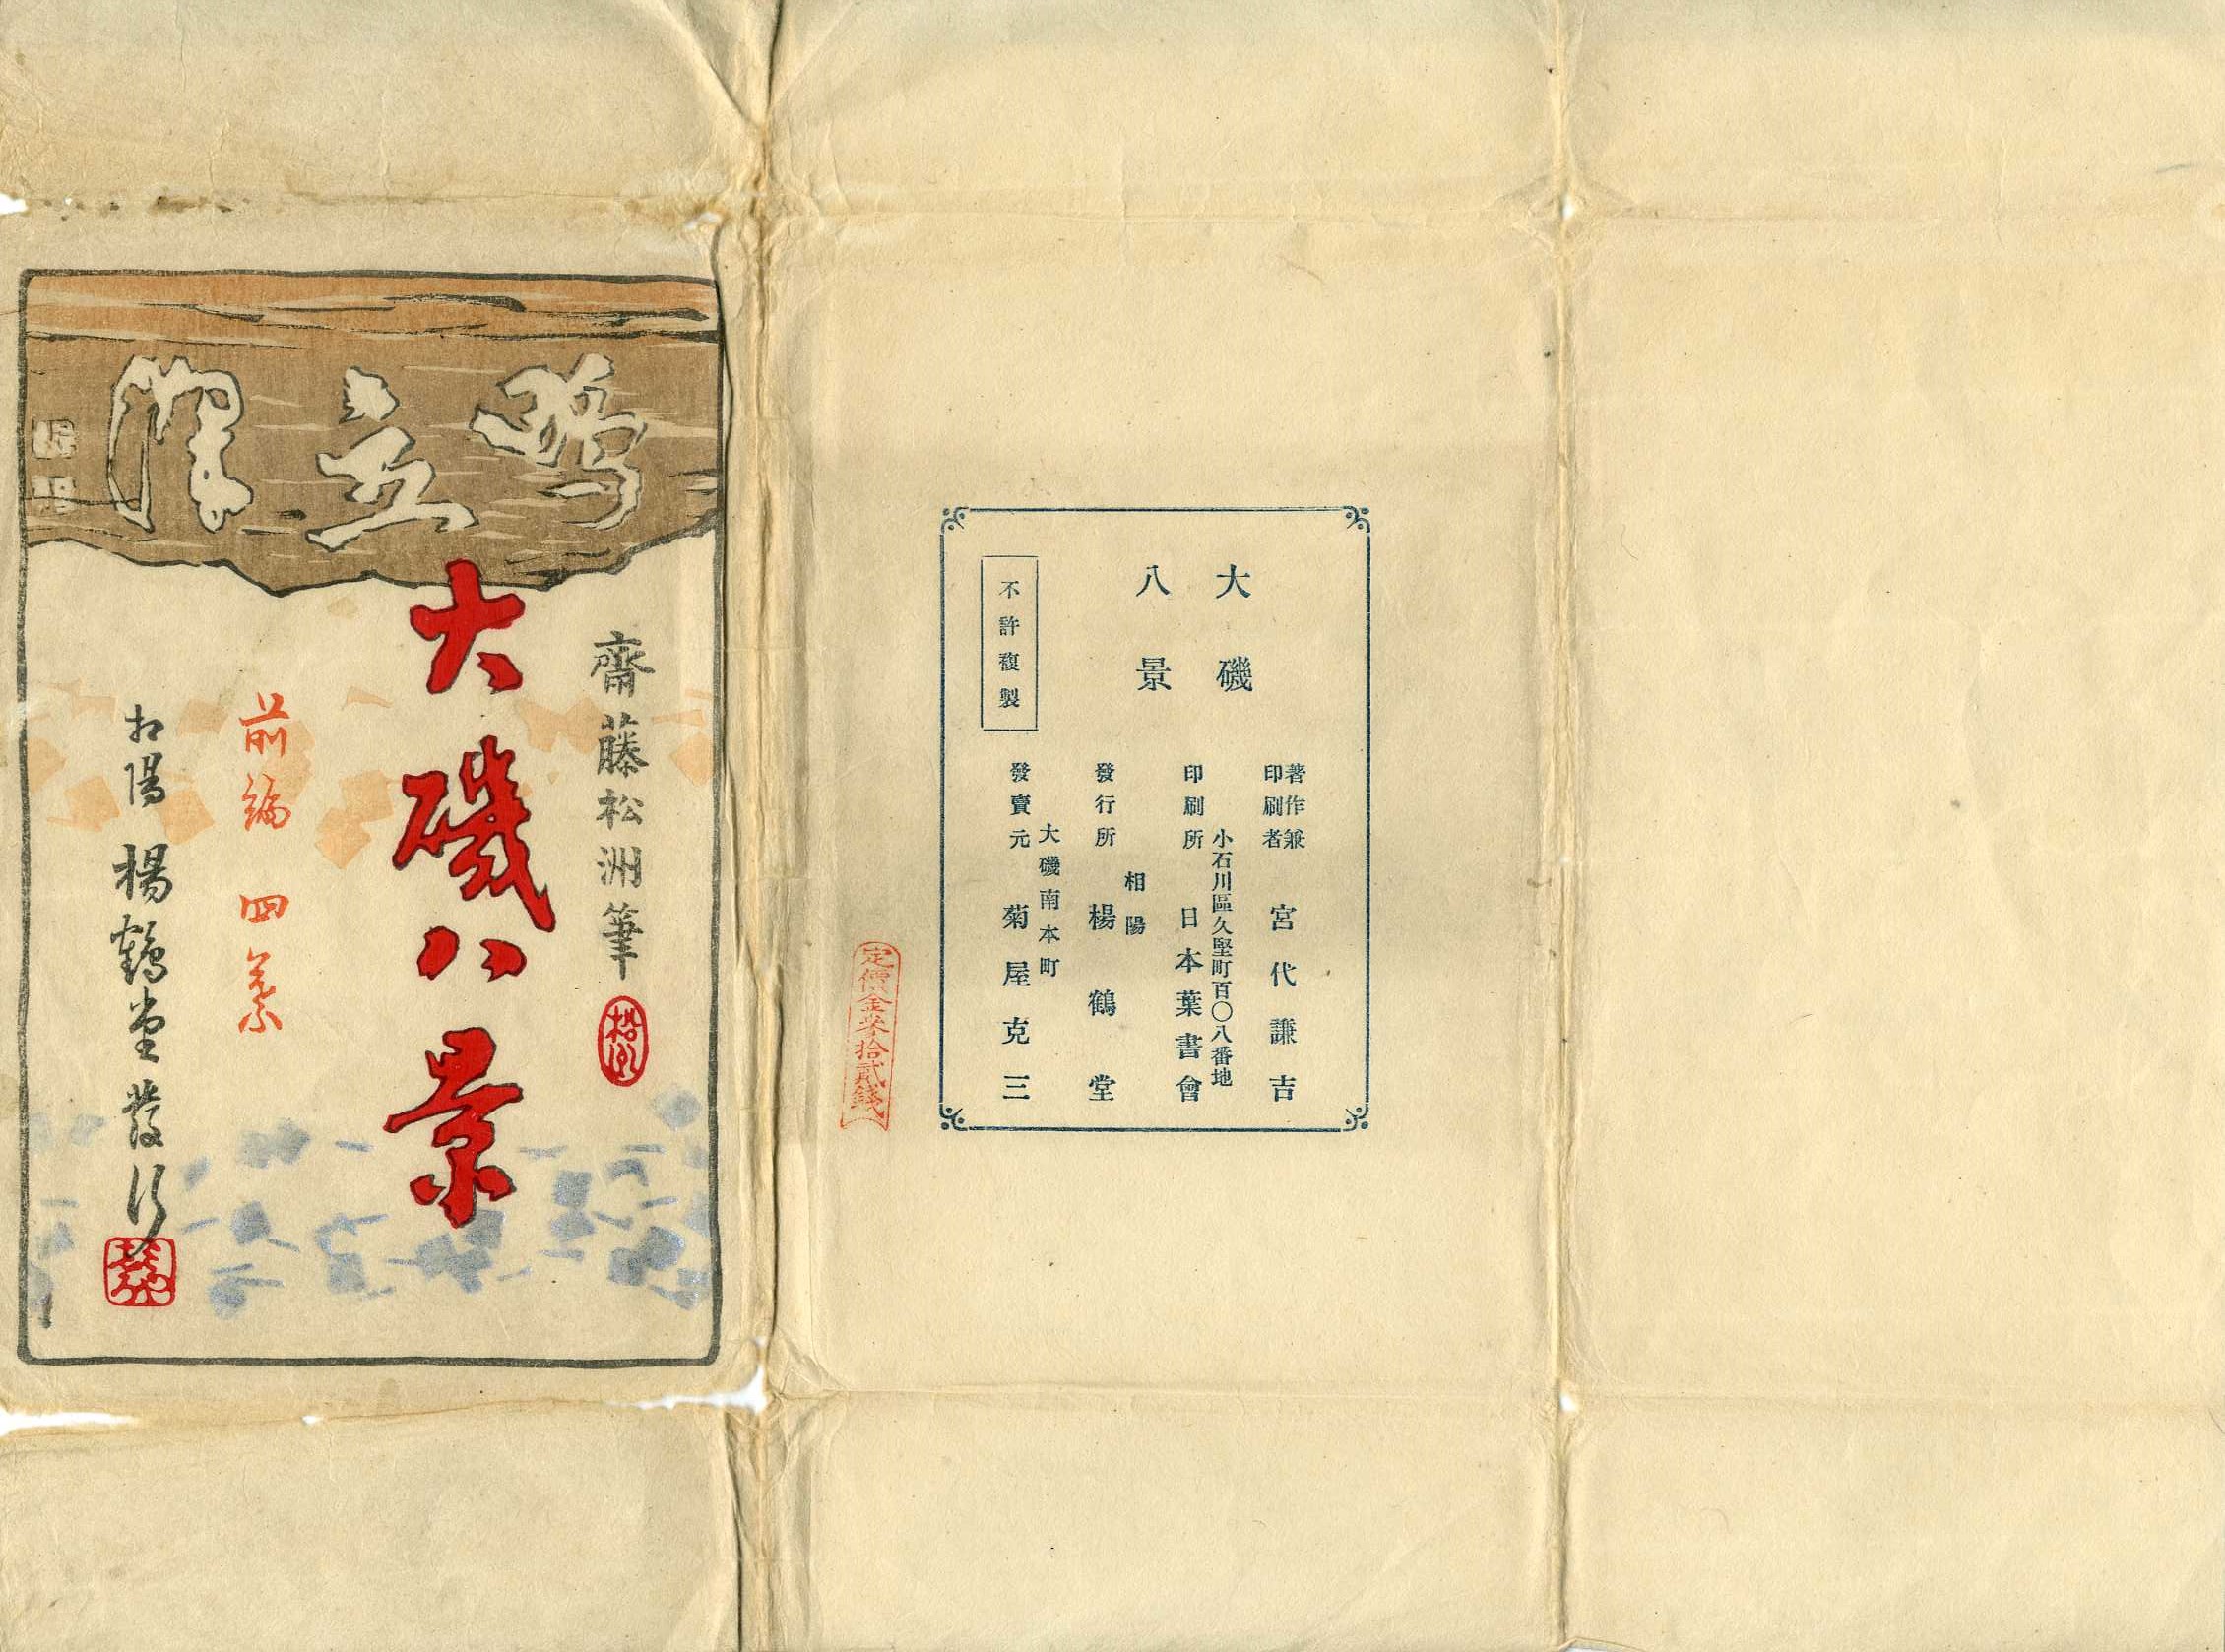 鴫立澤
齋藤松洲筆
大磯八景
前編 四葉
相陽 楊鶴堂發行
大磯
八景
不許複製
著作兼
印刷者
宮代謙吉
小石川區久堅町百〇八番地
印刷所 日本葉書會
相陽
發行所 楊鶴堂
大磯南本町
發賣元 菊屋克三
定價金参拾貳錢